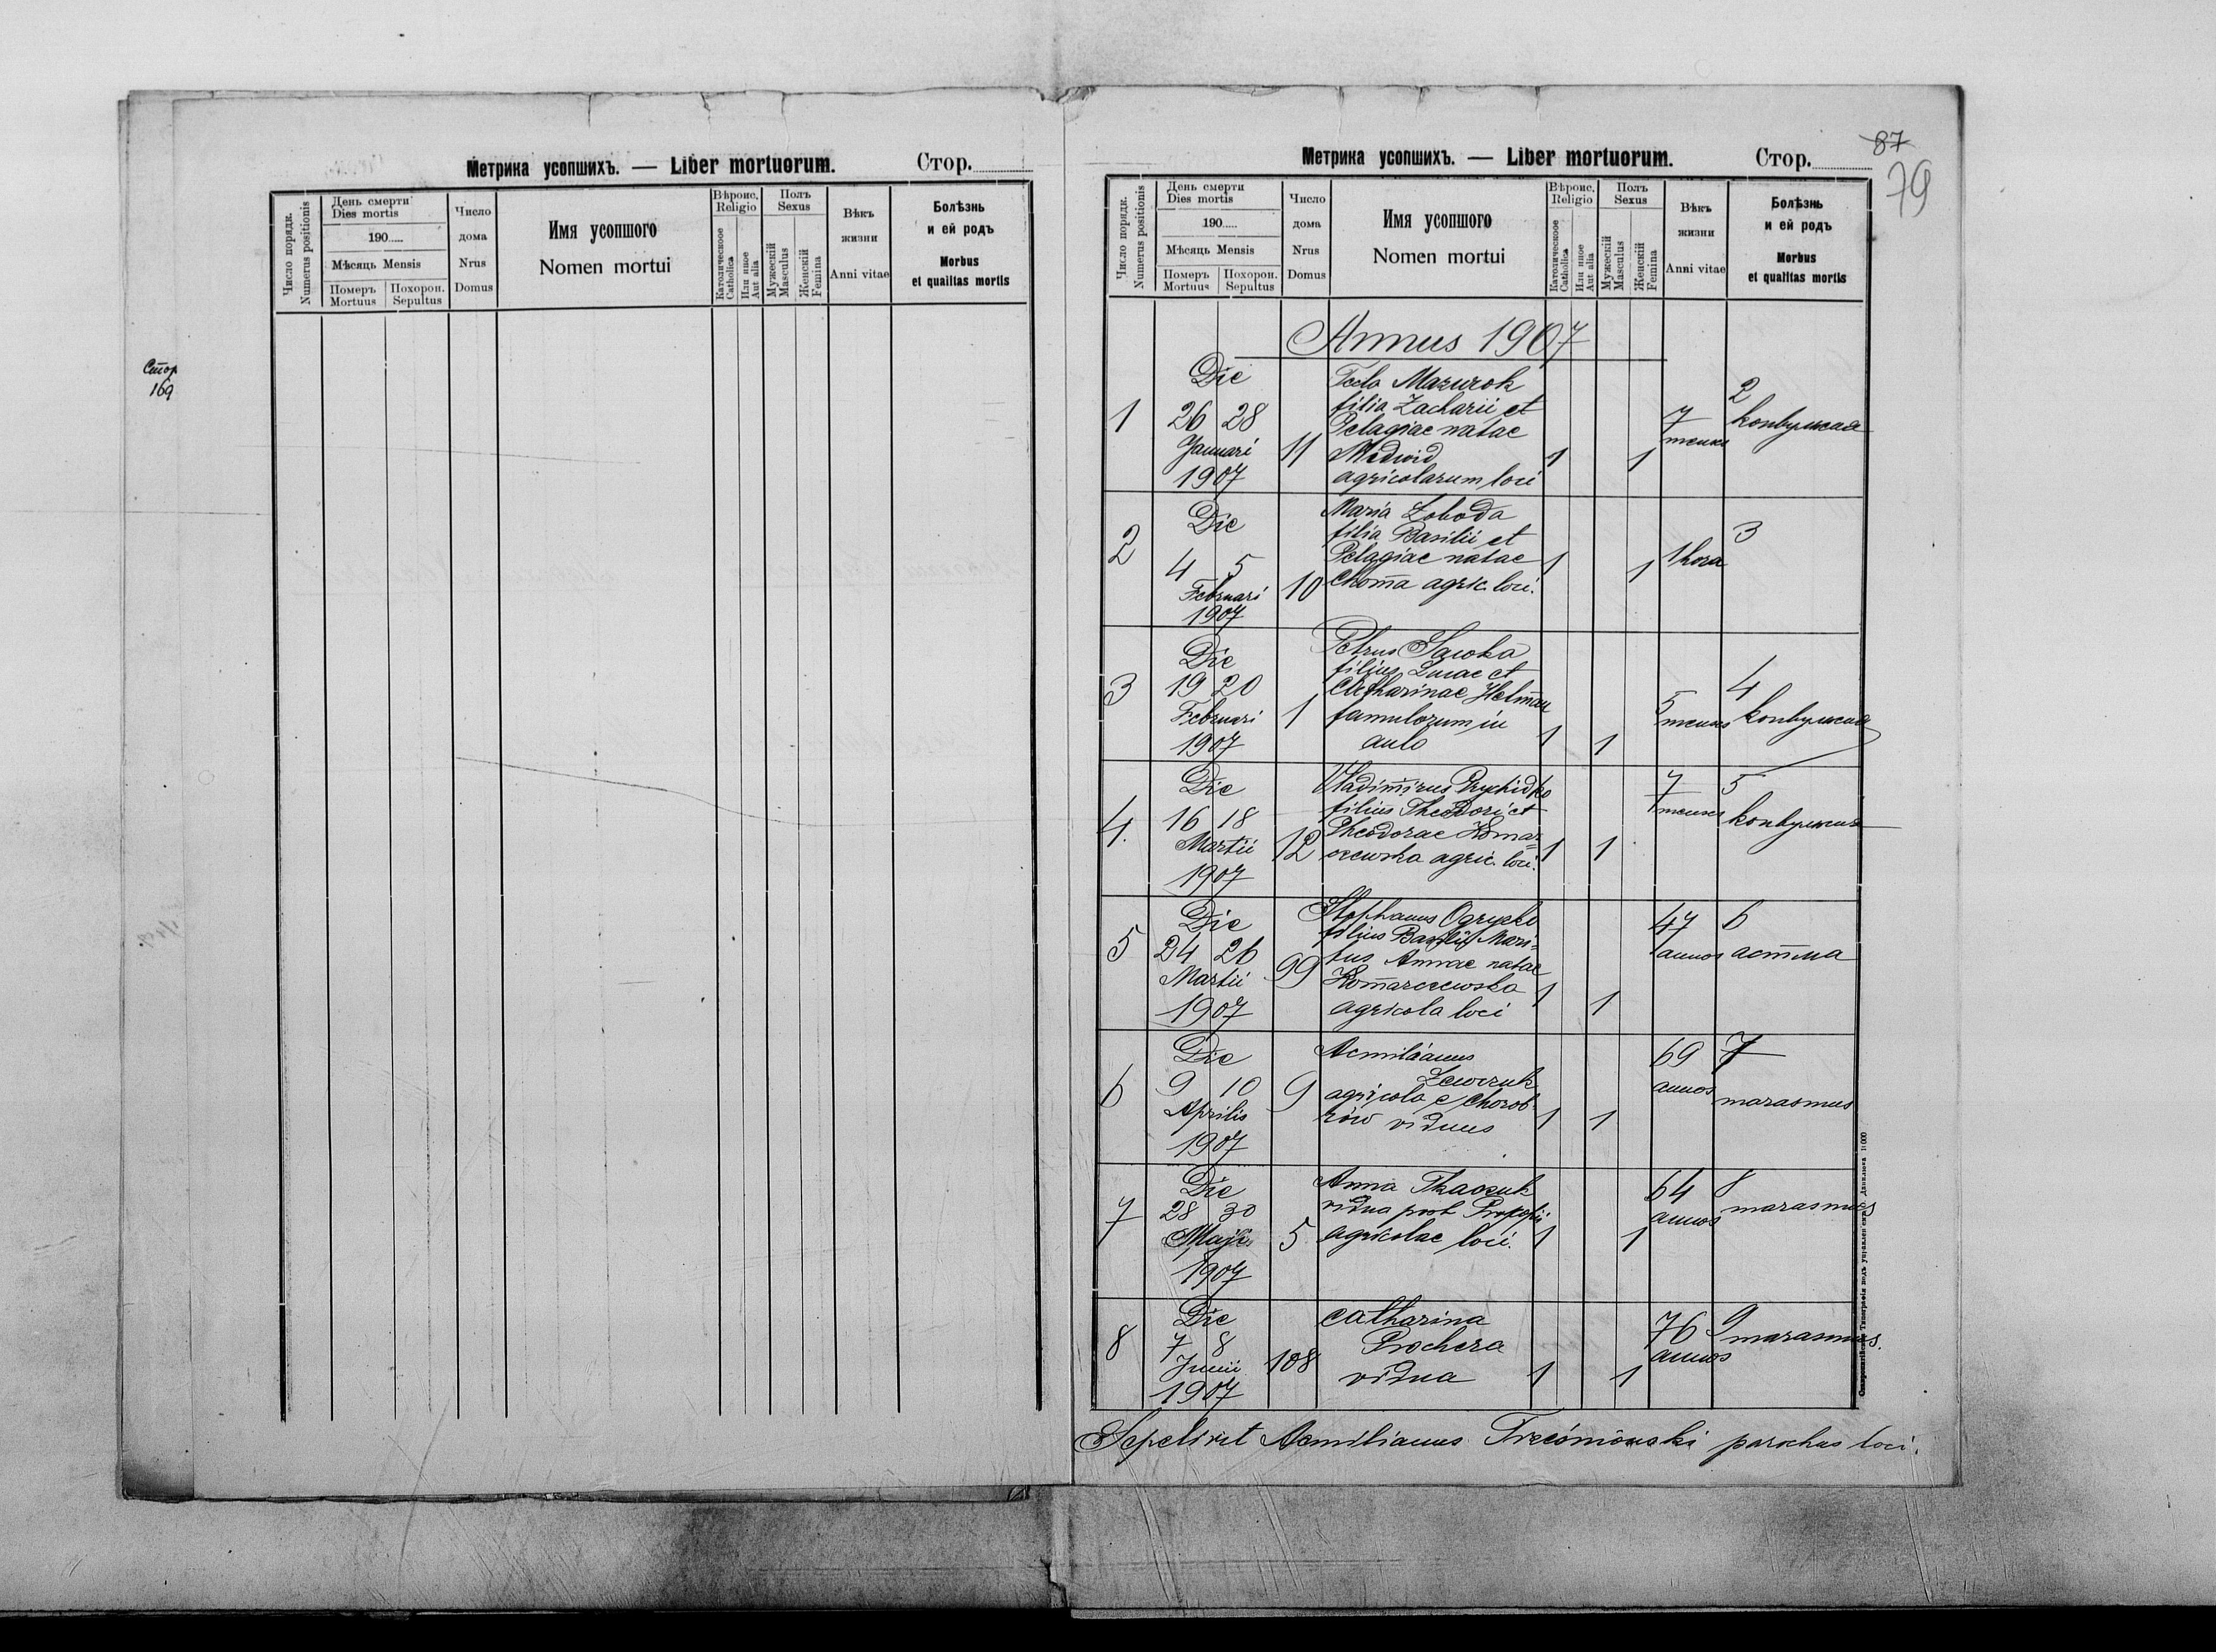 Метрика усопшихъ. — Liber mortuorum. Стор.
Число порядк.
Numerus positionis
День смерти
Dies mortis
190
Мѣсяць Mensis
Померъ
Mortuus
Похорон.
Sepultus
Число
дома
Nrus
Domus
Имя усопшого
Nomen mortui
Вѣроис.
Religio
Католическоое
Catholica
Или иное
Aut alia
Полъ
Sexus
Мужескій
Masculus
Женскій
Femina
Вѣкъ
жизни
Anni vitae
Болѣзнь
и ей родъ
Morbus
et qualitas mortis
Стор
169
Метрика усопшихъ. — Liber mortuorum. Стор.
87
79
Число порядк.
Numerus positionis
День смерти
Dies mortis
190
Мѣсяць Mensis
Померъ
Mortuus
Похорон.
Sepultus
Число
дома
Nrus
Domus
Имя усопшого
Nomen mortui
Вѣроис.
Religio
Католическоое
Catholica
Или иное
Aut alia
Полъ
Sexus
Мужескій
Masculus
Женскій
Femina
Вѣкъ
жизни
Anni vitae
Болѣзнь
и ей родъ
Morbus
et qualitas mortis
Annus 1907
1
Die
26 28
Januari
1907
11
Tecla Mazurok
filia Zacharii et
Pelagiae natae
Medwid
agricolarum loci
1
1
7
menses
2
конвульсия
2
Die
4 5
Februari
1907
10
Maria Loboda
filia Basilii et
Pelagiae natae
Choma agric. loci.
1
1
1 hora
3
3
Die
19 20
Februari
1907
1
Petrus Sawka
filius Lucae et
Catharinae Helman
famulorum in
aulo
1
1
5
menses
4
конвульсия
4.
Die
16 18
Martii
1907
12
Vladimirus Prychidko
filius Theodori et
Theodorae Komar=
czewska agric. loci.
1
1
7
menses
5
конвульсия
5
Die
24 26
Martii
1907
99
Stephanus Ogryzko
filius Basilii Mari=
tus Annae natae
Komarczewska
agricola loci
1
1
47
annos
6
астма
6
Die
9 10
Aprilis
1907
9
Aemilianus
Lewczuk
agricola e Chorob
rów viduus
1
1
69
annos
7
marasmus
7
Die
28 30
Maji
1907
5
Anna Tkaczuk
vidua post Prokopii
agricolae loci.
1
1
64
annos
8
marasmus
8
Die
7 8
Junii
1907
108
Catharina
Prochera
vidua
1
1
76
annos
9
marasmus.
Sepelivit Aemilianus parochus loci.